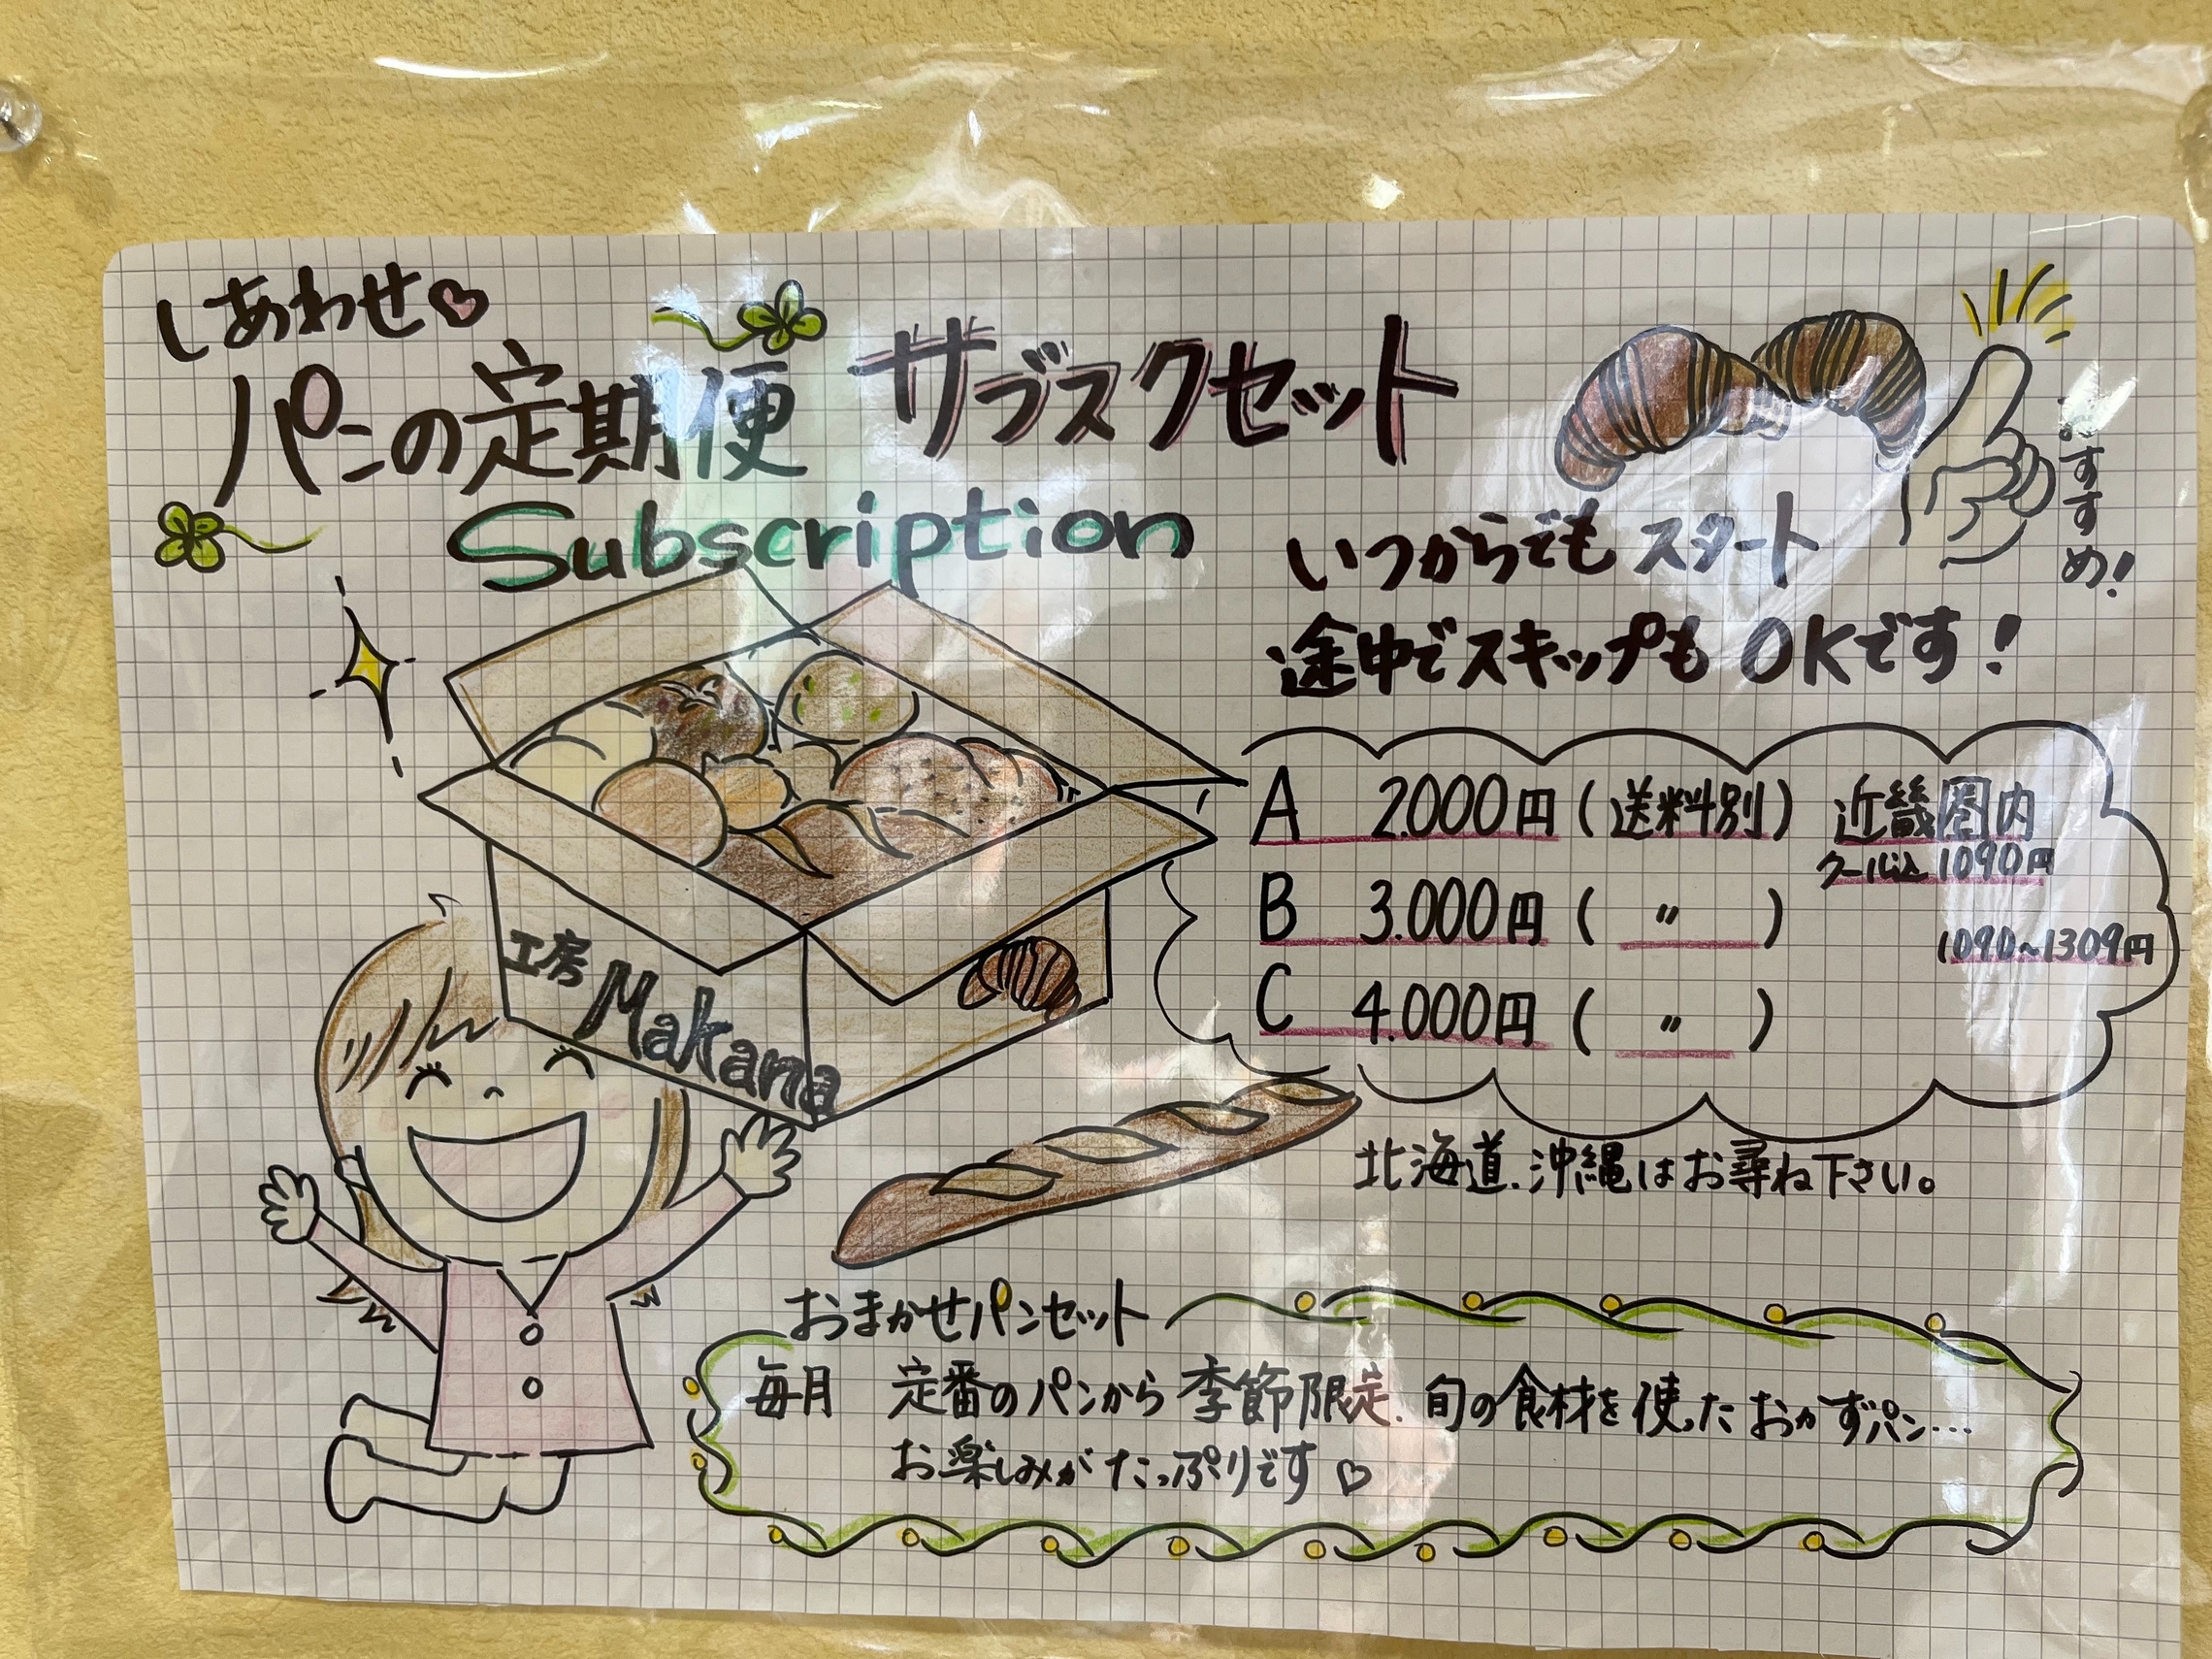 しあわせ♡
パンの定期便 サブスクセット
Subscription
おすすめ!
いつからでもスタート
途中でスキップも OKです!
A 2.000円 (送料別) 近畿圏内
クール込 1090円
B 3.000円 ( 〃 )
1090~1309円
C 4.000円 ( 〃 )
工房 Makana
北海道.沖縄はお尋ね下さい。
おまかせパンセット
毎月 定番のパンから 季節限定. 旬の食材を使ったおかずパン…
お楽しみがたっぷりです♡